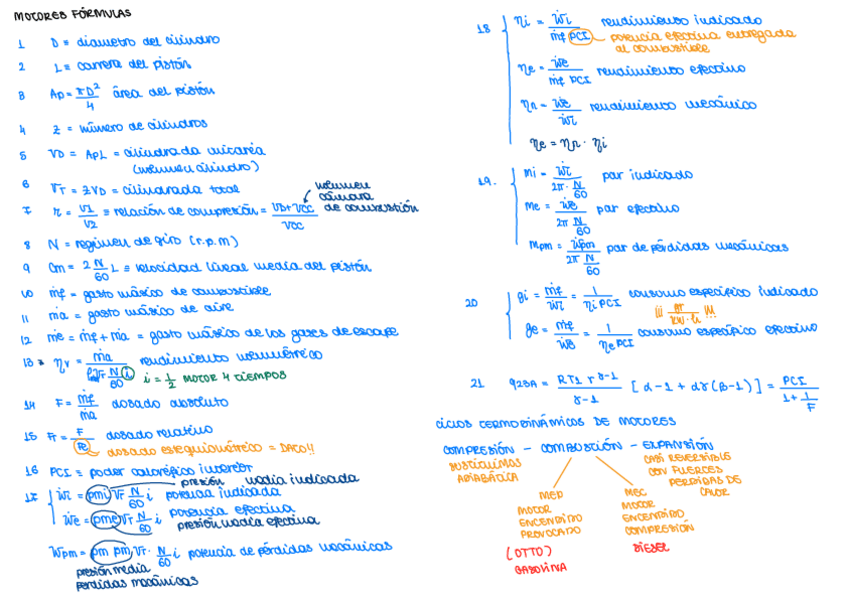 MOTORES FÓRMULAS
1 D ≡ diametro del cilindro
2 L ≡ carrera del pistón
3 Ap = πD²/4 área del pistón
4 Z ≡ número de cilindros
5 VD = ApL = cilindrada unitaria
(volumen cilindro)
6 VT = ZVD = cilindrada total
7 r = V1/V2 ≡ relación de compresión = VD+VCC/VCC
volumen cámara de combustión
8 N = regimen de giro (r.p.m)
9 Cm = 2 N/60 L ≡ velocidad lineal media del pistón
10 ṁf = gasto másico de combustible
11 ṁa = gasto másico de aire
12 ṁe = ṁf + ṁa = gasto másico de los gases de escape
13 * ηv = ṁa/ρVT N/60 i rendimiento volumétrico
i = 1/2 MOTOR 4 TIEMPOS
14 F = ṁf/ṁa dosado absoluto
15 Fr = F/Fe dosado relativo
dosado estequiométrico = DATO!!
16 PCI = poder calorífico inferior
presión media indicada
17 Ẇi = pmi VT N/60 i potencia indicada
Ẇe = pme VT N/60 i potencia efectiva
presión media efectiva
Ẇpm = pm pm VT · N/60 i potencia de pérdidas mecánicas
presión media
pérdidas mecánicas
18 ηi = Ẇi/ṁf PCI rendimiento indicado
potencia efectiva entregada
al combustible
ηe = Ẇe/ṁf PCI rendimiento efectivo
ηm = Ẇe/Ẇi rendimiento mecánico
ηe = ηm · ηi
19. mi = Ẇi/2π · N/60 par indicado
me = Ẇe/2π N/60 par efectivo
mpm = Ẇpm/2π N/60 par de pérdidas mecánicas
20 gi = ṁf/Ẇi = 1/ηi PCI consumo específico indicado
¡¡¡ gr/kW·h !!!
ge = ṁf/Ẇe = 1/ηe PCI consumo específico efectivo
21 q23A = RT1 r^γ-1/γ-1 [α-1+αγ(β-1)] = PCI/1+1/F
CICLOS TERMODINÁMICOS DE MOTORES
COMPRESIÓN - COMBUSTIÓN - EXPANSIÓN
ADIABÁTICA
CASI REVERSIBLE
CON FUERTES
PERDIDAS DE
CALOR
MEP
MOTOR
ENCENDIDO
PROVOCADO
(OTTO)
GASOLINA
MEC
MOTOR
ENCENDIDO
COMPRESIÓN
DIESEL